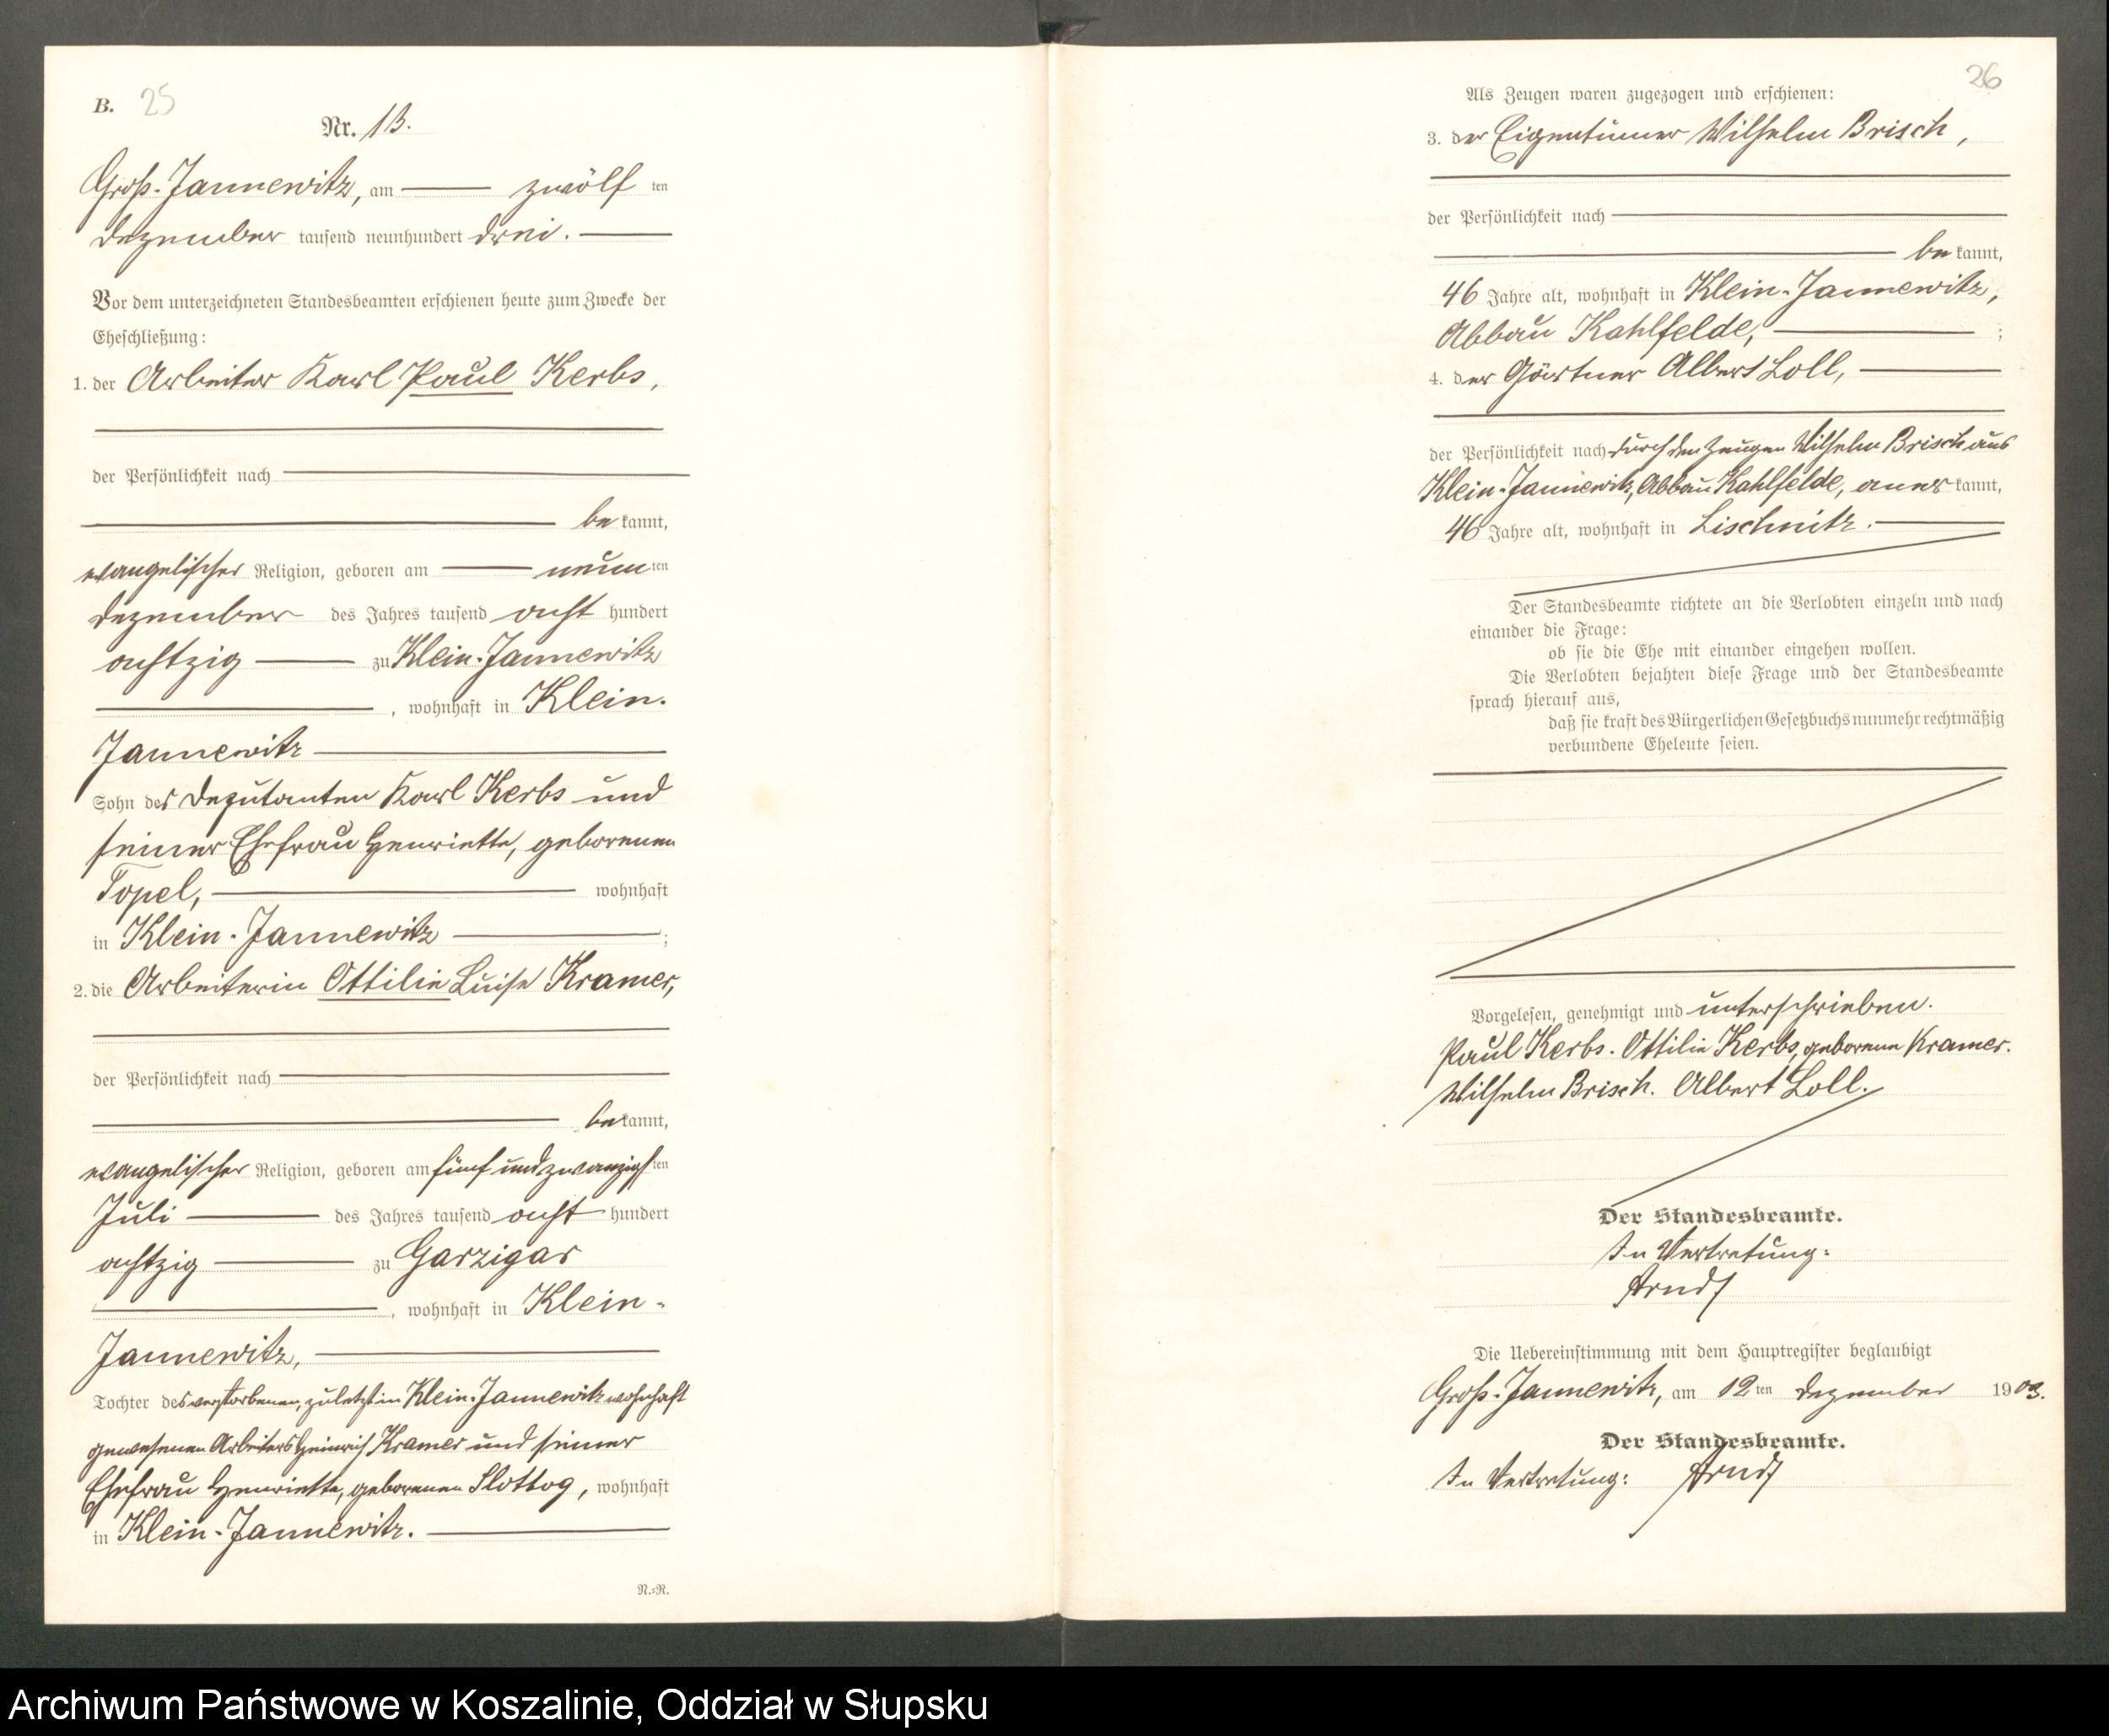 B. 25
Nr. 13.
Groß-Jannewitz, am zwölf ten
Dezember tausend neunhundert drei.
Vor dem unterzeichneten Standesbeamten erschienen heute zum Zwecke der
Eheschließung:
1. der Arbeiter Karl Paul Kerbs,
der Persönlichkeit nach
be kannt,
evangelischer Religion, geboren am neun ten
Dezember des Jahres tausend acht hundert
achtzig zu Klein-Jannewitz
, wohnhaft in Klein-
Jannewitz
Sohn des Deputanten Karl Kerbs und
seiner Ehefrau Henriette, geborenen
Topel, wohnhaft
in Klein-Jannewitz ;
2. die Arbeiterin Ottilie Luise Kramer,
der Persönlichkeit nach
be kannt,
evangelischer Religion, geboren am fünf und zwanzigs ten
Juli des Jahres tausend acht hundert
achtzig zu Garzigar
, wohnhaft in Klein-
Jannewitz,
Tochter des verstorbenen, zuletzt in Klein-Jannewitz wohnhaft
gewesenen Arbeiters Heinrich Kramer und seiner
Ehefrau Henriette, geborenen Slottog, wohnhaft
in Klein-Jannewitz.
N.=R.
26
Als Zeugen waren zugezogen und erschienen:
3. der Eigentümer Wilhelm Brisch,
der Persönlichkeit nach
be kannt,
46 Jahre alt, wohnhaft in Klein-Jannewitz,
Abbau Kahlfelde, ;
4. der Gärtner Albert Loll,
der Persönlichkeit nach durch den Zeugen Wilhelm Brisch aus
Klein-Jannewitz, Abbau Kahlfelde, aner kannt,
46 Jahre alt, wohnhaft in Lischnitz.
Der Standesbeamte richtete an die Verlobten einzeln und nach
einander die Frage:
ob sie die Ehe mit einander eingehen wollen.
Die Verlobten bejahten diese Frage und der Standesbeamte
sprach hierauf aus,
daß sie kraft des Bürgerlichen Gesetzbuchs nunmehr rechtmäßig
verbundene Eheleute seien.
Vorgelesen, genehmigt und unterschrieben.
Paul Kerbs. Ottilie Kerbs, geborene Kramer.
Wilhelm Brisch. Albert Loll.
Der Standesbeamte.
In Vertretung:
Arndt
Die Uebereinstimmung mit dem Hauptregister beglaubigt
Groß-Jannewitz, am 12 ten Dezember 1903.
Der Standesbeamte.
In Vertretung: Arndt
Archiwum Państwowe w Koszalinie, Oddział w Słupsku